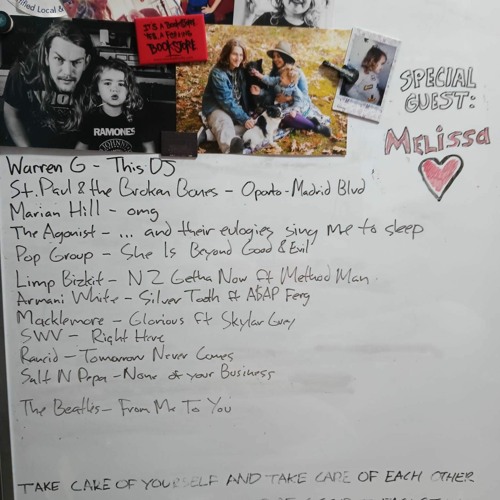 ified Local &
IT'S A BOOKSTORE
BOOKSTORE
RAMONES
JOHNNY
SPECIAL
GUEST:
MELISSA
Warren G - This DJ
St. Paul & the Broken Bones - Oporto-Madrid Blvd
Marian Hill - omg
The Agonist - ... and their eulogies sing me to sleep
Pop Group - She Is Beyond Good & Evil
Limp Bizkit - N 2 Getha Now ft Method Man
Armani White - Silver Tooth ft A$AP Ferg
Macklemore - Glorious ft Skylar Grey
SWV - Right Here
Rancid - Tomorrow Never Comes
Salt N Pepa - None of your Business
The Beatles - From Me To You
TAKE CARE OF YOURSELF AND TAKE CARE OF EACH OTHER